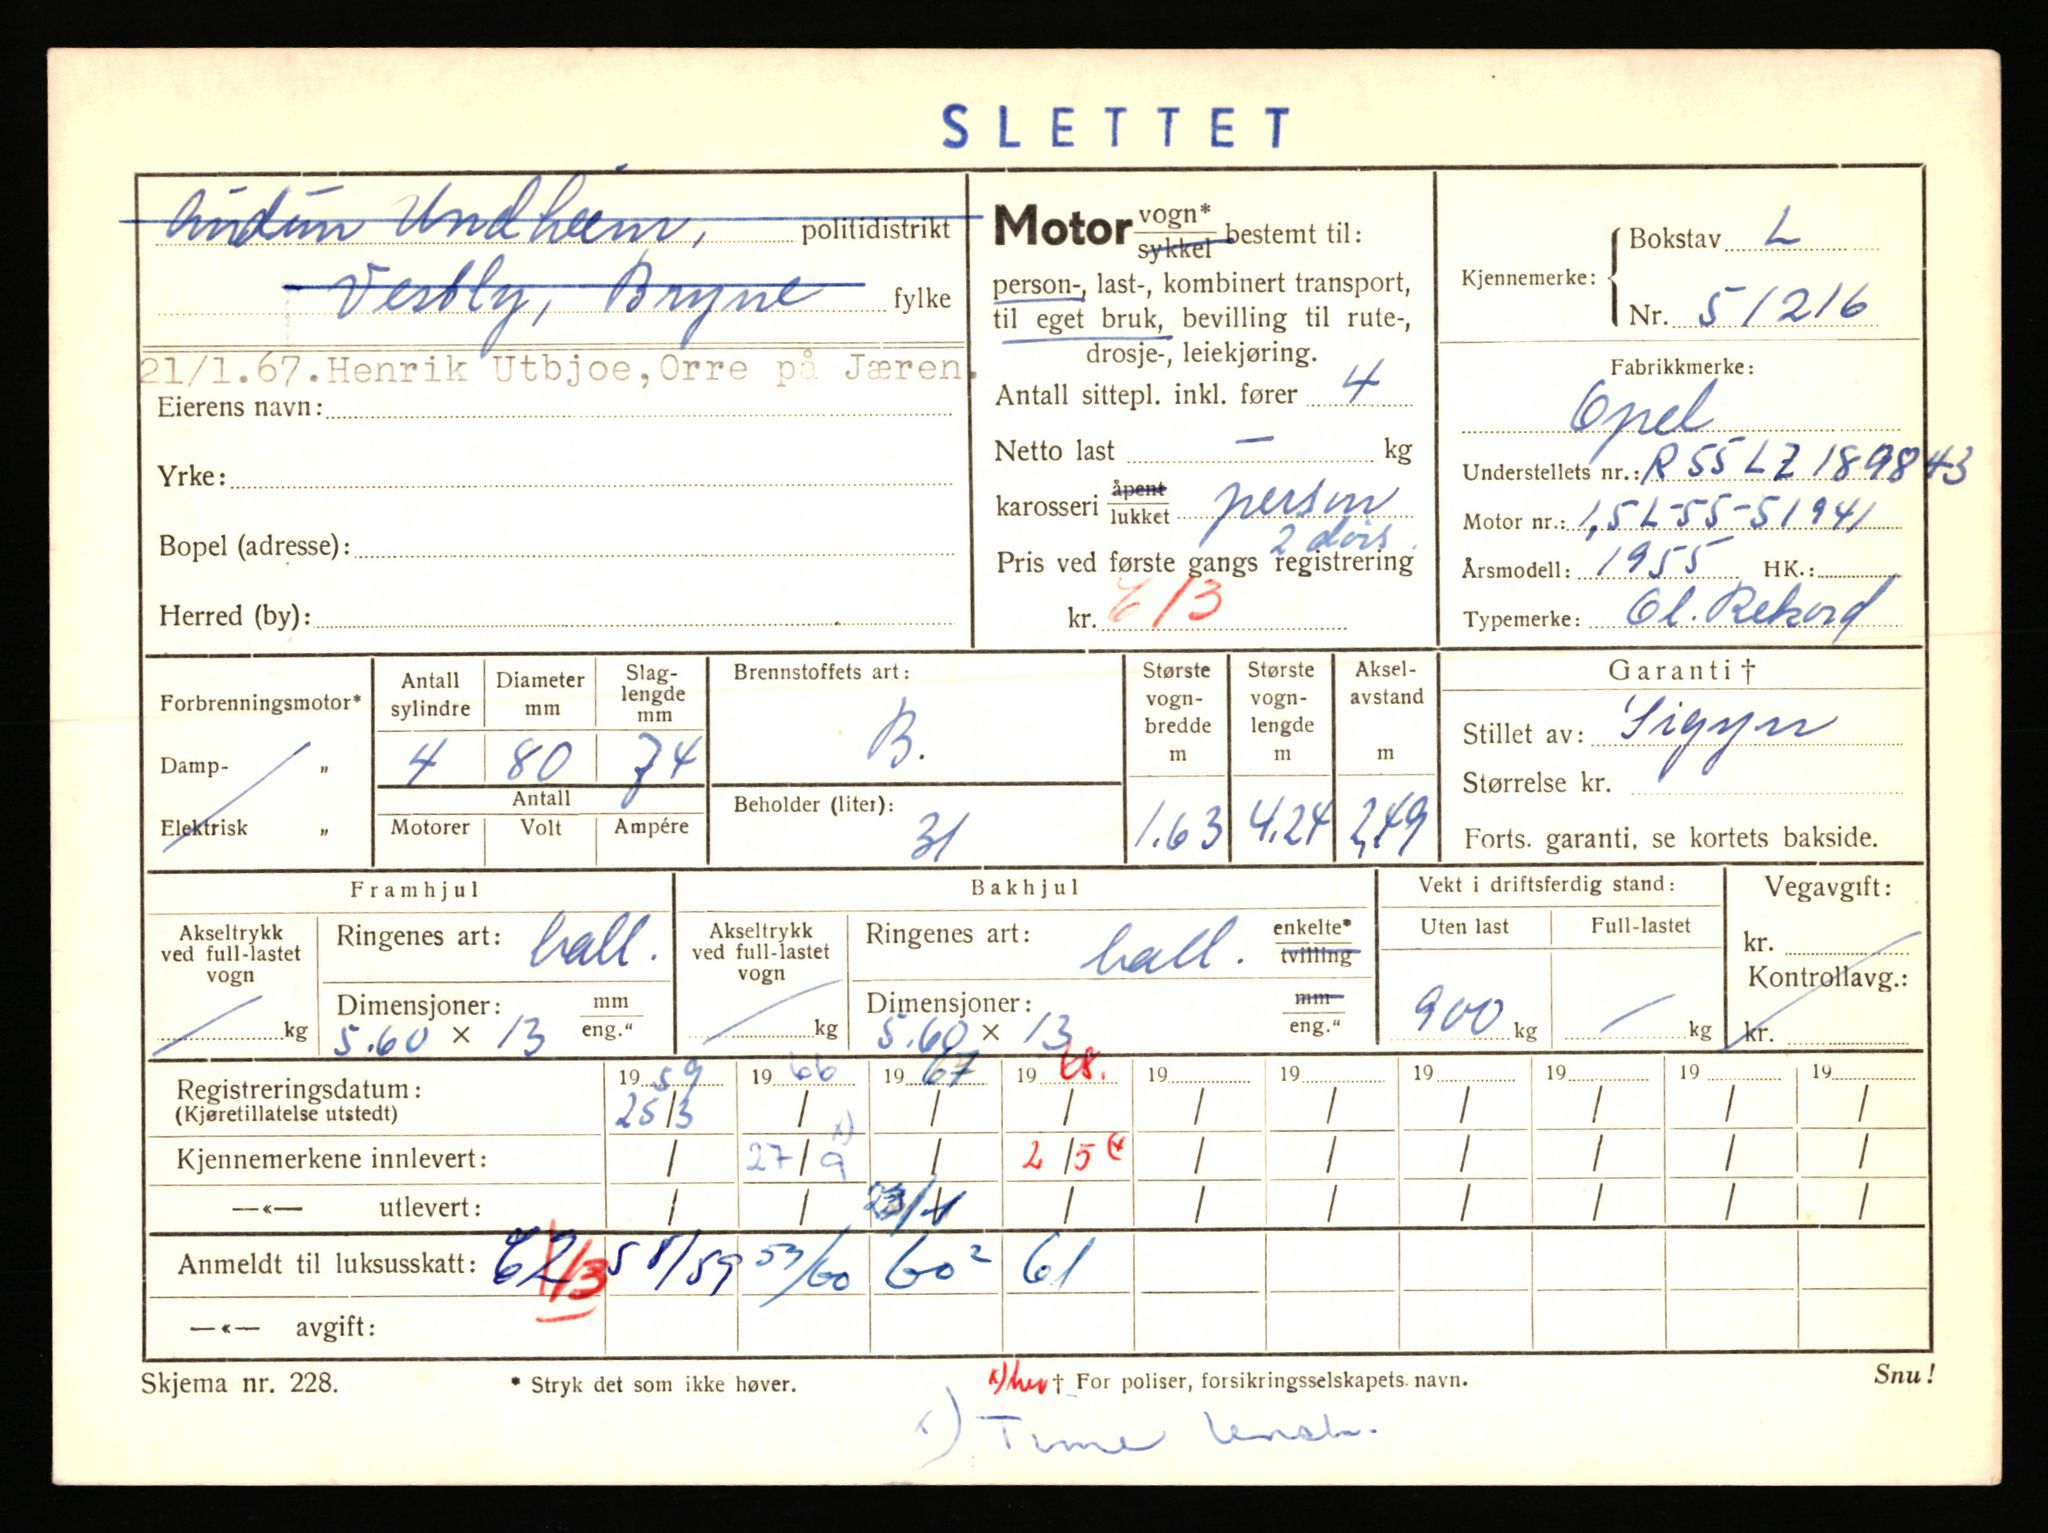 SLETTET
Audun Undheim, politidistrikt
Vestly, Bryne fylke
21/1.67.Henrik Utbjoe,Orre på Jæren.
Eierens navn:
Yrke:
Bopel (adresse):
Herred (by):
Motor vogn* sykkel bestemt til:
person-, last-, kombinert transport,
til eget bruk, bevilling til rute-,
drosje-, leiekjøring.
Antall sittepl. inkl. fører 4
Netto last — kg
karosseri åpent lukket person
2 dørs.
Pris ved første gangs registrering
kr.
Kjennemerke: Bokstav L
Nr. 51216
Fabrikkmerke:
Opel
Understellets nr.: R 55 LZ 189843
Motor nr.: 1,5 L-55-51941
Årsmodell: 1955 HK.:
Typemerke: Ol. Rekord
Forbrenningsmotor*
Damp- „
Elektrisk „
Antall sylindre
4
Diameter mm
80
Slag-lengde mm
74
Antall
Motorer Volt Ampére
Brennstoffets art:
B.
Beholder (liter):
31
Største vogn-bredde m
1.63
Største vogn-lengde m
4.24
Aksel-avstand m
2,49
Garanti †
Stillet av: Sigyn
Størrelse kr.
Forts. garanti, se kortets bakside.
Framhjul
Akseltrykk ved full-lastet vogn
kg
Ringenes art: ball.
Dimensjoner: mm eng."
5.60 × 13
Bakhjul
Akseltrykk ved full-lastet vogn
kg
Ringenes art: ball. enkelte* tvilling
Dimensjoner: mm eng."
5.60 × 13
Vekt i driftsferdig stand:
Uten last Full-lastet
900 kg — kg
Vegavgift:
kr.
Kontrollavg.:
kr.
Registreringsdatum: 19 59 19 66 19 67 19 68. 19 19 19 19 19 19
(Kjøretillatelse utstedt) 25/3 / / / / / / / / /
Kjennemerkene innlevert: / 27/9 x) / 2/5 / / / / / /
—«— utlevert: / / / / / / / / /
Anmeldt til luksusskatt: 62 1/3 58/59 59/60 60² 61
—«— avgift:
Skjema nr. 228. * Stryk det som ikke høver. x) † For poliser, forsikringsselskapets. navn. Snu!
x) Time lensk.